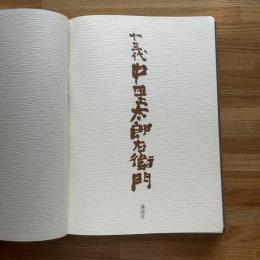 十三代 中里太郎右衛門
講談社